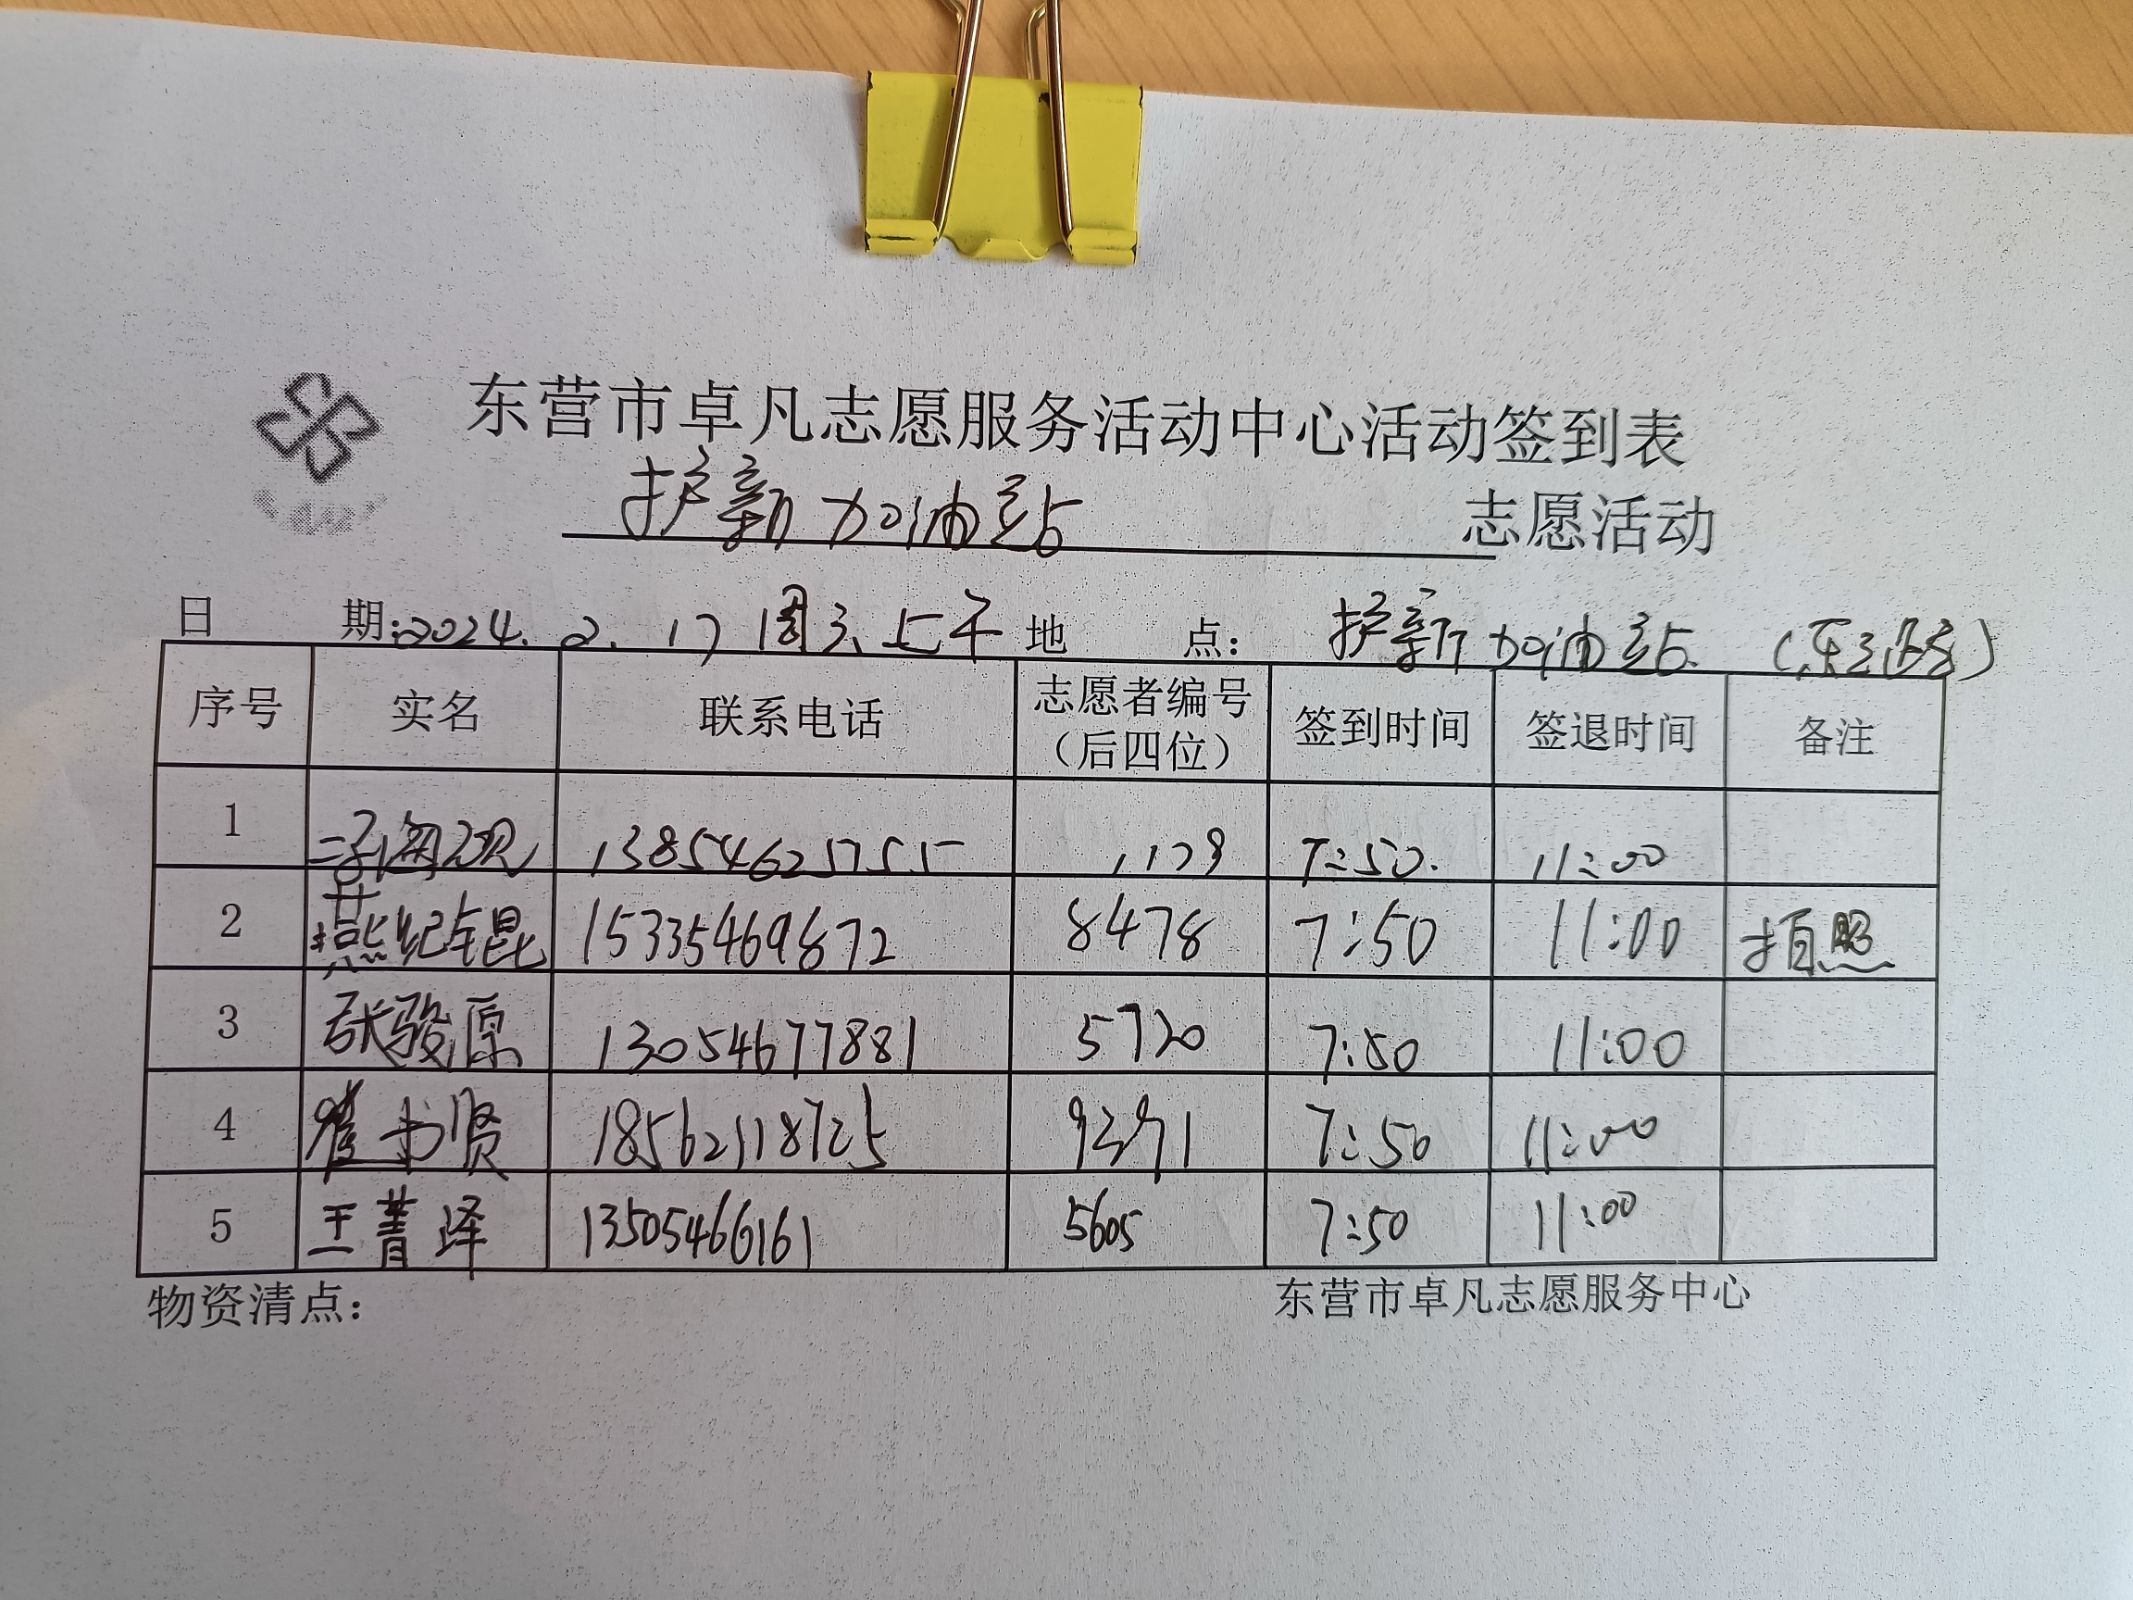 东营市卓凡志愿服务活动中心活动签到表
护新加油站 志愿活动
日 期:2024.2.17 周六上午 地 点： 护新加油站（东三路）
序号 实名 联系电话 志愿者编号（后四位） 签到时间 签退时间 备注
1 13854625755 1179 7:50. 11:00
2 燕纪锟 15335469872 8478 7:50 11:00 拍照
3 张骏原 13054677881 5720 7:50 11:00
4 崔书贤 18562118725 9391 7:50 11:00
5 王菁泽 13505466161 5605 7:50 11:00
物资清点： 东营市卓凡志愿服务中心